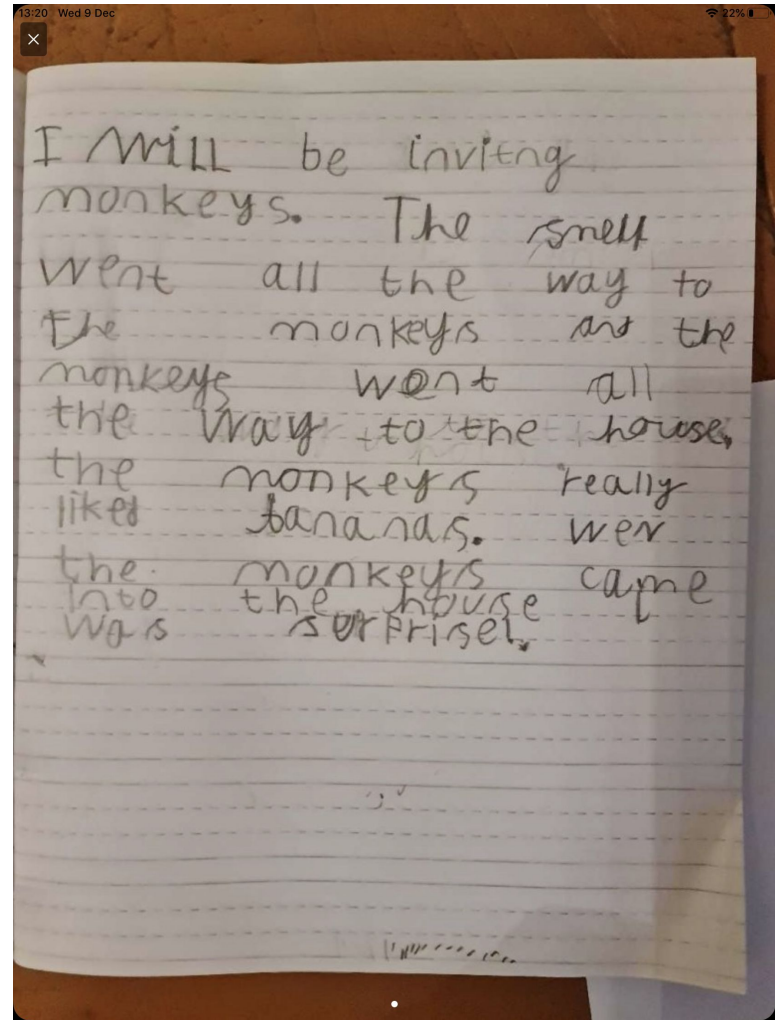 13:20 Wed 9 Dec 22%
I Will be invitng
monkeys. The smell
went all the way to
the monkeys and the
monkeys went all
the way to the house,
the monkeys really
liked bananas. wen
the monkeys came
into the house
was surprisel.